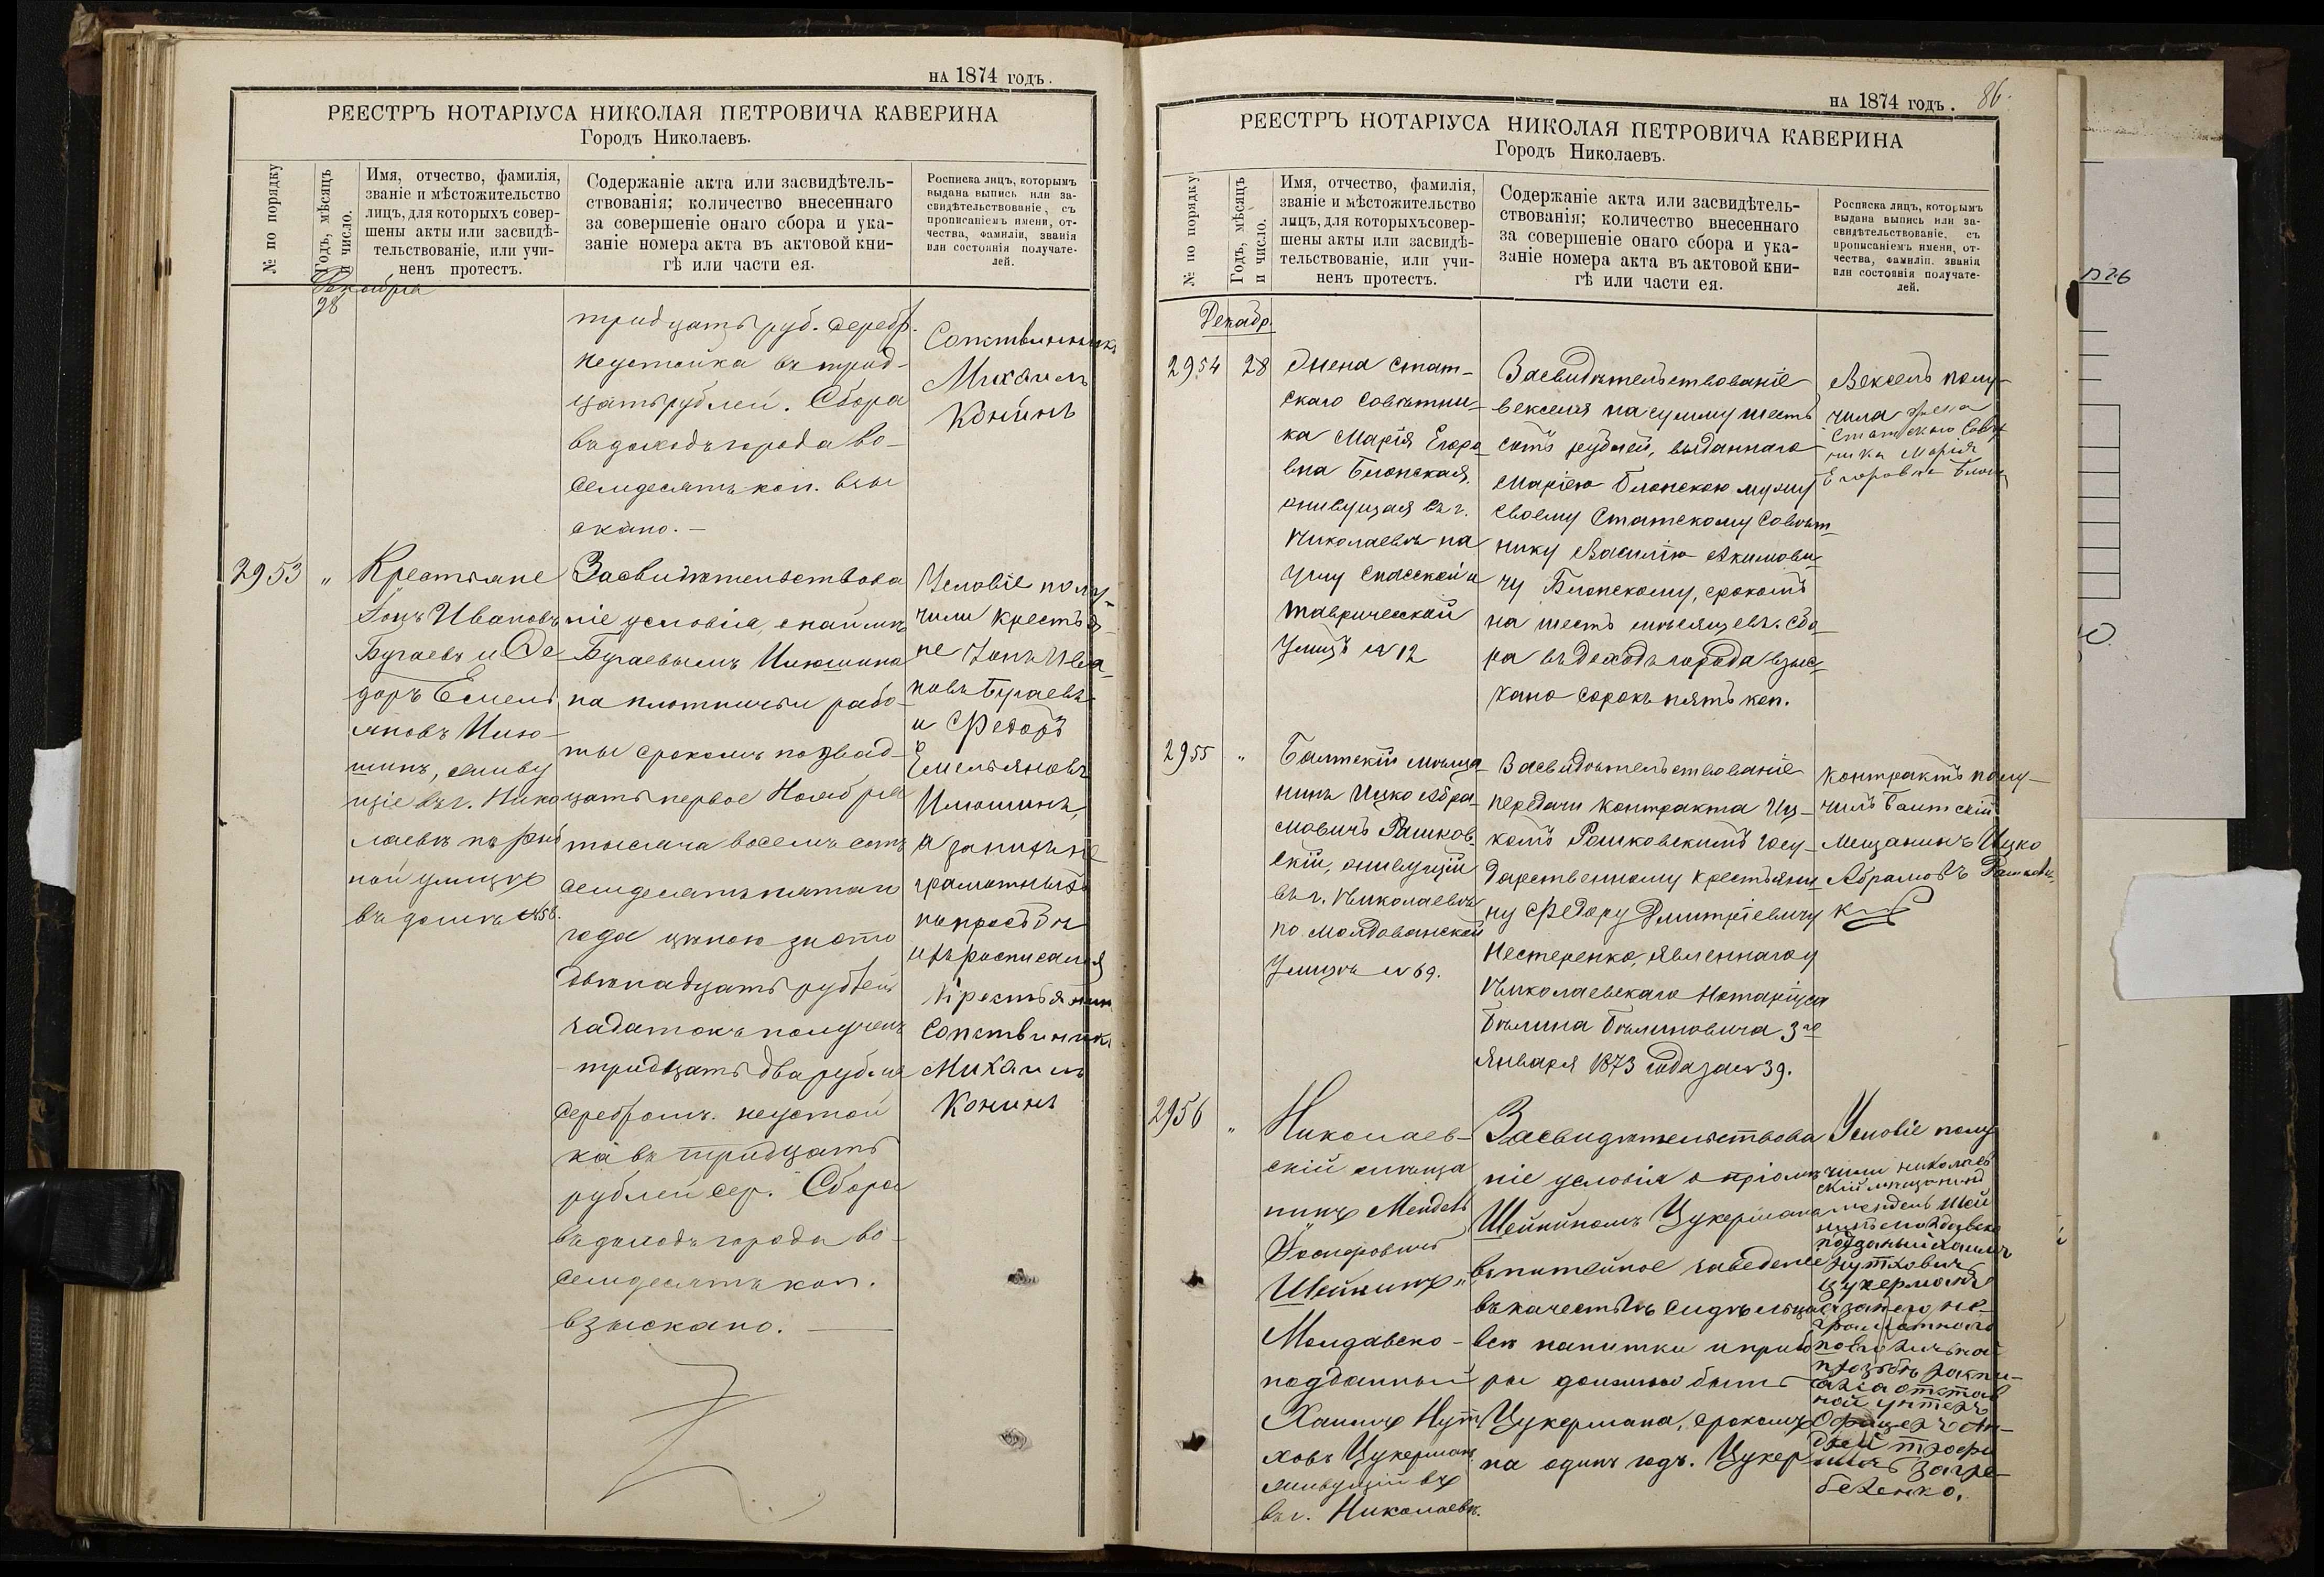 на 1874 годъ.
РЕЕСТРЪ НОТАРІУСА НИКОЛАЯ ПЕТРОВИЧА КАВЕРИНА
Городъ Николаевъ.
№ по порядку
Годъ, мѣсяцъ
и число.
Имя, отчество, фамилія,
званіе и мѣстожительство
лицъ, для которыхъ совер-
шены акты или засвидѣ-
тельствованіе, или учи-
ненъ протестъ.
Содержаніе акта или засвидѣтель-
ствованія; количество внесеннаго
за совершеніе онаго сбора и ука-
заніе номера акта въ актовой кни-
гѣ или части ея.
Росписка лицъ, которымъ
выдана выпись или за-
свидѣтельствованіе, съ
прописаніемъ имени, от-
чества, фамиліи, званія
или состоянія получате-
лей.
Декабря
28
тридцать руб. серебр.
неустойка въ трид-
цать рублей. Сбора
въ доходъ города во-
семдесятъ коп. взы
скано. —
Михаилъ
Конинъ
2953
"
Крестьяне
Ивановъ
Бугаевъ и Ѳе
доръ Емель
яновъ Илю-
шинъ, живу
щіе въ г. Нико
лаевѣ по Рыб
ной улицѣ
въ домѣ №58.
Засвидѣтельствова
ніе условія, о наймѣ
Бугаевымъ Илюшина
на плотничьи рабо-
ты срокомъ по двад-
цать первое Ноября
тысяча восемь сотъ
семдесятъ пятаго
года цѣною за сто
двѣнадцать рублей
задатокъ полученъ
тридцать два рубля
серебромъ. неустой
ка въ тридцать
рублей сер. Сбора
въ доходъ города во-
семдесятъ коп.
взыскано. —
Условіе полу-
чили крестья-
не Ива-
новъ Бугаевъ
и Федоръ
Емельяновъ
Илюшинъ,
а за нихъ не
грамотныхъ
по прозбѣ
ихъ росписался
Крестьянин
Михаилъ
Конинъ
на 1874 годъ. 86.
РЕЕСТРЪ НОТАРІУСА НИКОЛАЯ ПЕТРОВИЧА КАВЕРИНА
Городъ Николаевъ.
№ по порядку
Годъ, мѣсяцъ
и число.
Имя, отчество, фамилія,
званіе и мѣстожительство
лицъ, для которыхъ совер-
шены акты или засвидѣ-
тельствованіе, или учи-
ненъ протестъ.
Содержаніе акта или засвидѣтель-
ствованія; количество внесеннаго
за совершеніе онаго сбора и ука-
заніе номера акта въ актовой кни-
гѣ или части ея.
Росписка лицъ, которымъ
выдана выпись или за-
свидѣтельствованіе, съ
прописаніемъ имени, от-
чества, фамиліи, званія
или состоянія получате-
лей.
Декабр.
2954
28
Жена Стат-
скаго Совѣтни-
ка Марія Егоро
вна Блонская,
живущая въ г.
Николаевѣ на
углу Спасской и
Таврической
Улицъ №12
Засвидѣтельствованіе
векселя на сумму шесть
сотъ рублей, выданнаго
Маріею Блонскою мужу
своему Статскому Совѣт
нику Василію Акимови
чу Блонскому, срокомъ
на шесть мѣсяцевъ. Сбо
ра въ доходъ города взыс-
кано сорокъ пять коп.
Вексель полу-
чила жена
Статскаго Совѣт
ника Марія
Егоровна
2955
"
Балтскій мѣща
нинъ Ицко Абра-
мовичъ Рашков-
скій, живущій
въ г. Николаевѣ
по Молдаванской
Улицѣ №69.
Засвидѣтельствованіе
передачи контракта Иц-
комъ Рашковскимъ Госу-
дарственному крестьяни
ну Федору Дмитріевичу
Нестеренко, явленнаго у
Николаевскаго Нотаріуса
Бѣлина Бѣлиновича 3го
Января 1873 года за №39.
Контрактъ полу-
чилъ Балтскій
Мещанинъ Ицко
Абрамовъ
2956
"
Николаев-
скій мѣща
нинъ Mendel
Іосифовичъ
Шейнинъ "
Молдавско-
подданный
Хаимъ Нут
ховъ Цукерманъ
живущій въ
въ г. Николаевѣ.
Засвидѣтельствова
ніе условія о пріомѣ
Шейнинымъ Цукермана
въ питейное заведеніе
въ качествѣ сидѣльца
всѣ напитки и прибо
ры должны быть
Цукермана, срокомъ
на одинъ годъ. Цукер
Условіе полу
чили николаев
скій мѣщанинъ
Мендель Шей
нинъ Молдавско
подданый Хаимъ
Нутховичъ
Цукерманъ
а за него не-
грамотного
по его личной
прозьбѣ распи-
сался отстав
ной унтеръ
Офицеръ Ан-
дрей Трофи
мичъ Загре-
беленко.